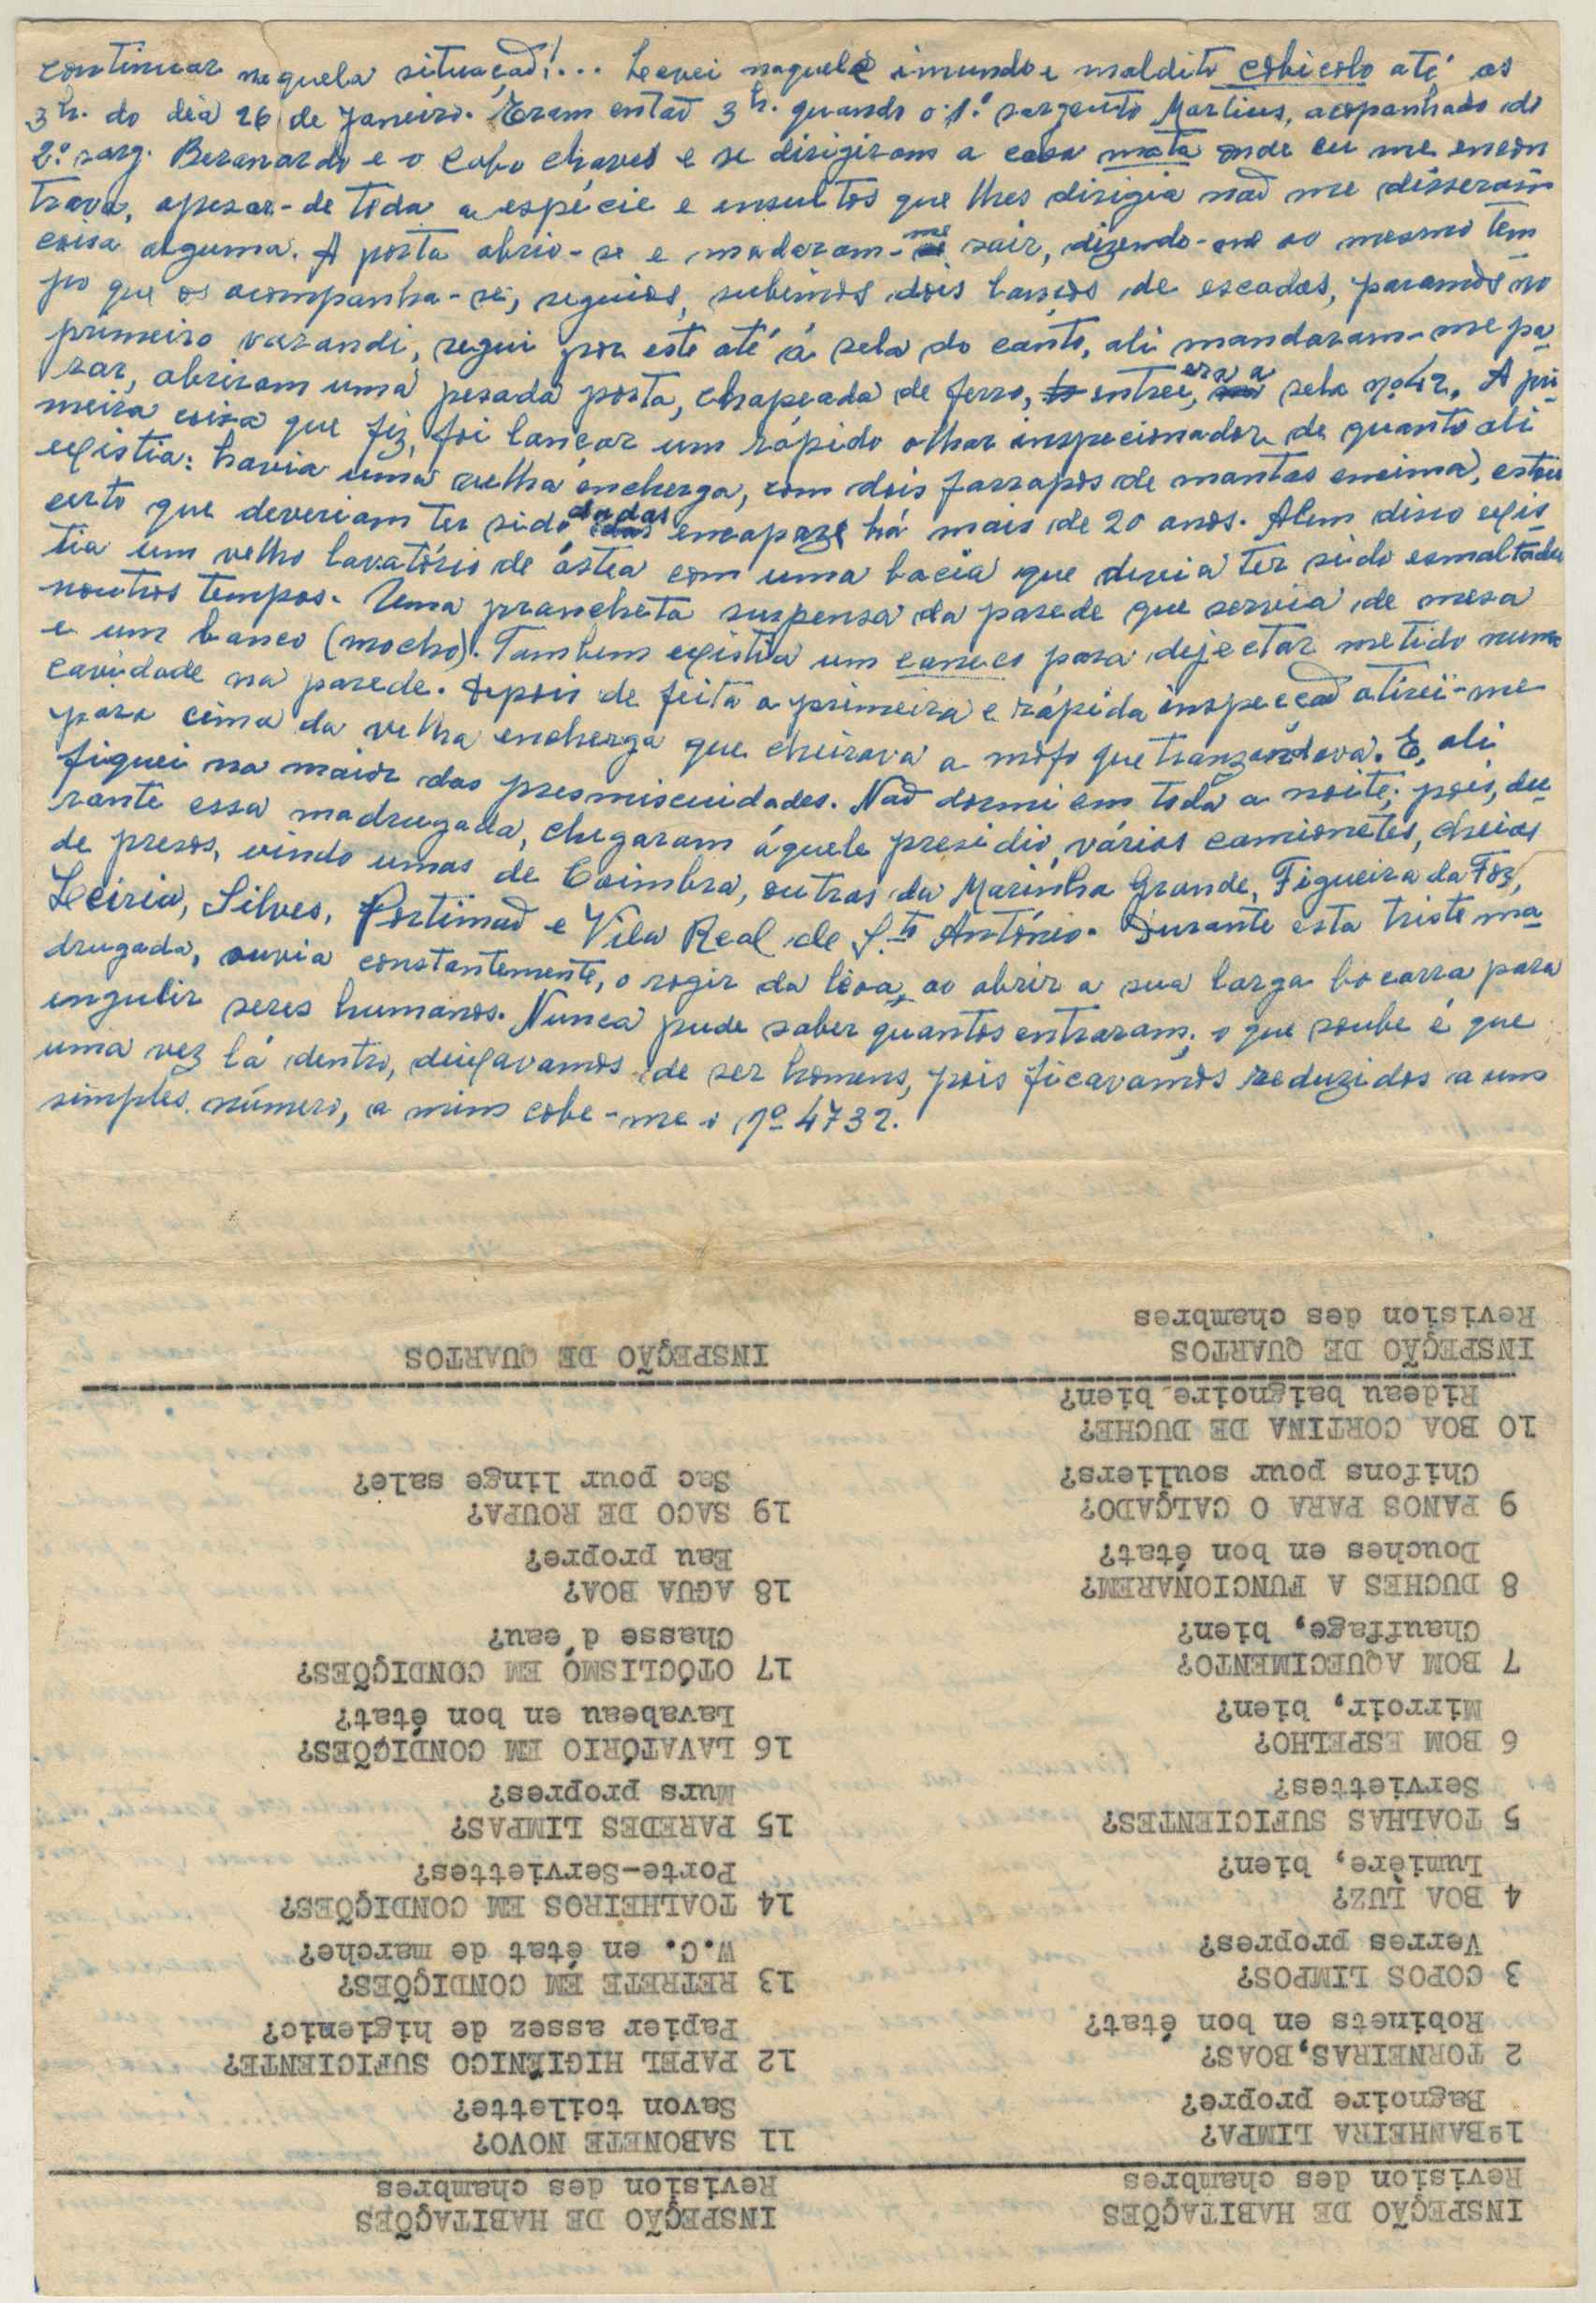 continuar naquela situação!... Levei naquele imundo e maldito cobicolo até as
3h. do dia 26 de Janeiro. Eram entaõ 3h. quando o 1.º sargento Martins, acopanhado do
2.º sarg. Beranardo e o Cabo chaves e se dirigiram a casa mata onde eu me encon
trava, apesar-de toda a espécie e ensultos que lhes dirigia naõ me disseram
coisa alguma. A porta abrio-se e madaram-me sair, dizendo-me ao mesmo tem
po que os acompanha-se, seguios, subimos dois lanços de escadas, paramos no
primeiro varandi, segui por este até á sela do canto, ali mandaram-me pa
rar, abriram uma pesada porta, chapeada de ferro, entrei, era a sela nº 42. A pri
meira coisa que fiz, foi lançar um rápido olhar inspecionador de quanto ali
existia: havia uma velha encherga, com dois farrapos de mantas encima, estou
certo que deveriam ter sido dadas encapaze há mais de 20 anos. Alem disso exis
tia um velho lavatório de ástea com uma bacia que devia ter sido esmaltada
noutros tempos. Uma prancheta suspensa da parede que servia de mesa
e um banco (mocho). Tambem existia um caneco para dejectar metido numa
cavidade na parede. Depois de feita a primeira e rápida inspecçaõ atirei-me
para cima da velha encherga que cheirava a mofo que tranzandava. E, ali
fiquei na maior das presmiscuidades. Naõ dormi em toda a noite; pois, du
rante essa madrugada, chegaram áquele presidio, várias camionetes, cheias
de presos, vindo umas de Coimbra, outras da Marinha Grande, Figueira da Foz,
Leiria, Silves, Portimaõ e Vila Real de Sto António. Durante esta triste ma
drugada, ouvia constantemente, o rogir da lioa, ao abrir a sua larga bocarra para
engulir seres humanos. Nunca pude saber quantos entraram; o que soube é que
uma vez lá dentro, deixavamos de ser homens, pois ficavamos reduzidos a um
simples número, a mim cobe-me o nº 4732.
INSPEÇÃO DE HABITAÇÕES
Revision des chambres
1ºBANHEIRA LIMPA?
Bagnoire propre?
2 TORNEIRAS,BOAS?
Robinets en bon état?
3 COPOS LIMPOS?
Verres propres?
4 BOA LUZ?
Lumière, bien?
5 TOALHAS SUFICIENTES?
Serviettes?
6 BOM ESPELHO?
Mirroir, bien?
7 BOM AQUECIMENTO?
Chauffage, bien?
8 DUCHES A FUNCIONAREM?
Douches en bon état?
9 PANOS PARA O CALÇADO?
Chifons pour souliers?
10 BOA CORTINA DE DUCHE?
Rideau baignoire bien?
INSPEÇÃO DE QUARTOS
Revision des chambres
INSPEÇÃO DE HABITAÇÕES
Revision des chambres
11 SABONETE NOVO?
Savon toilette?
12 PAPEL HIGIÉNICO SUFICIENTE?
Papier assez de higienic?
13 RETRETE EM CONDIÇÕES?
W.C. en état de marche?
14 TOALHEIROS EM CONDIÇÕES?
Porte-Serviettes?
15 PAREDES LIMPAS?
Murs propres?
16 LAVATÓRIO EM CONDIÇÕES?
Lavabeau en bon état?
17 OTÓCLISMO EM CONDIÇÕES?
Chasse d'eau?
18 AGUA BOA?
Eau propre?
19 SACO DE ROUPA?
Sac pour linge sale?
INSPEÇÃO DE QUARTOS